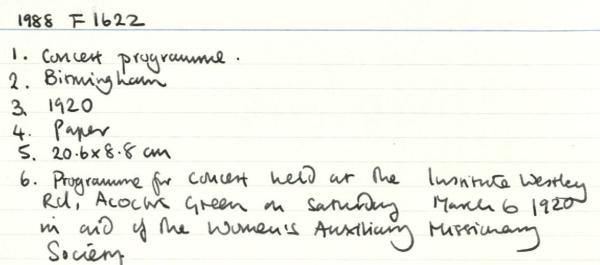 1988 F 1622
1. Concert programme.
2. Birmingham
3. 1920
4. Paper
5. 20.6 x 8.8 cm
6. Programme for concert held at the Institute Westley
Rd, Acocks Green on Saturday March 6 1920
in aid of the Women's Auxiliary Missionary
Society